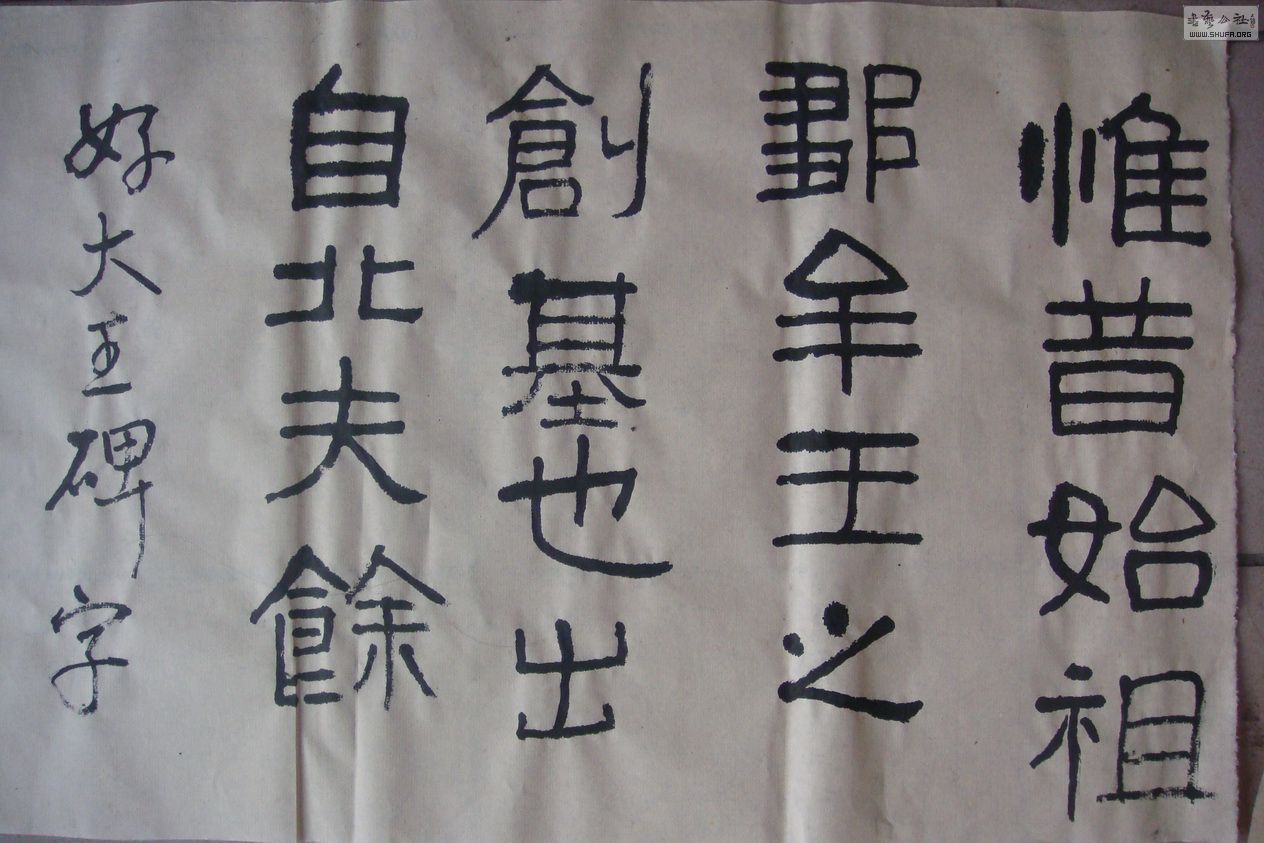 惟昔始祖
鄒牟王之
創基也出
自北夫餘
好大王碑字
書藝公社
WWW.SHUFA.ORG